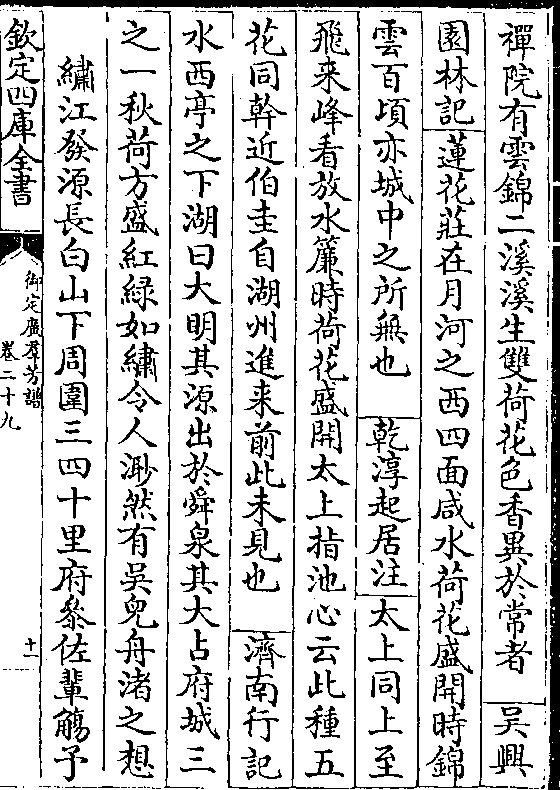 禪院有雲錦二溪溪生雙荷花色香異於常者 吳興
園林記 蓮花莊在月河之西四面咸水荷花盛開時錦
雲百頃亦城中之所無也 乾淳起居注 太上同上至
飛来峰看放水簾時荷花盛開太上指池心云此種五
花同幹近伯圭自湖州進来前此未見也 濟南行記
水西亭之下湖曰大明其源出於舜泉其大占府城三
之一秋荷方盛紅緑如繡令人渺然有吳兒舟渚之想
繡江發源長白山下周圍三四十里府叅佐輩觴予
欽定四庫全書
御定廣羣芳譜
卷二十九
十一